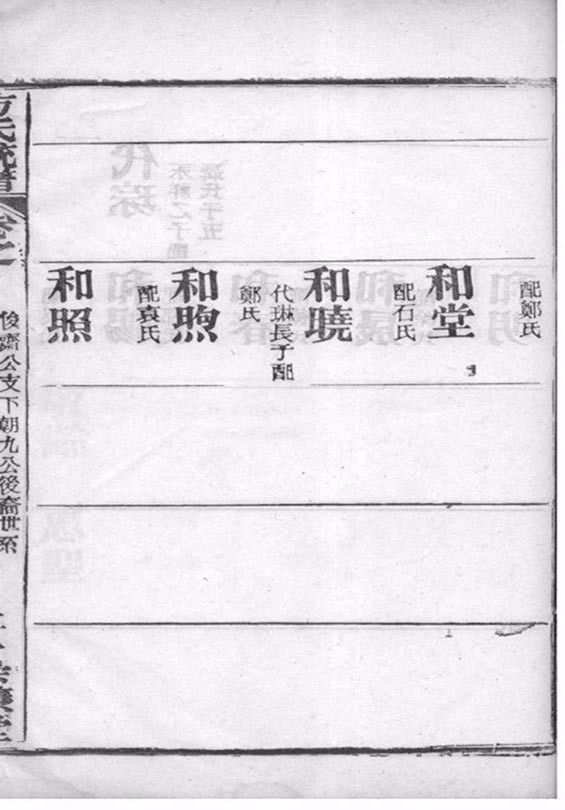 配鄭氏
和堂
配石氏
和曉
代琳長子配
鄭氏
和煦
配袁氏
和照
方氏統譜
俊齋公支下朝九公後裔世系